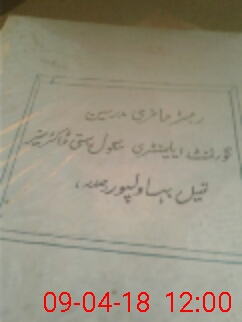 رجسٹر حاضری مدرسین
گورنمنٹ ایلیمنٹری سکول بستی
بہاولپور صدر
09-04-18 12:00